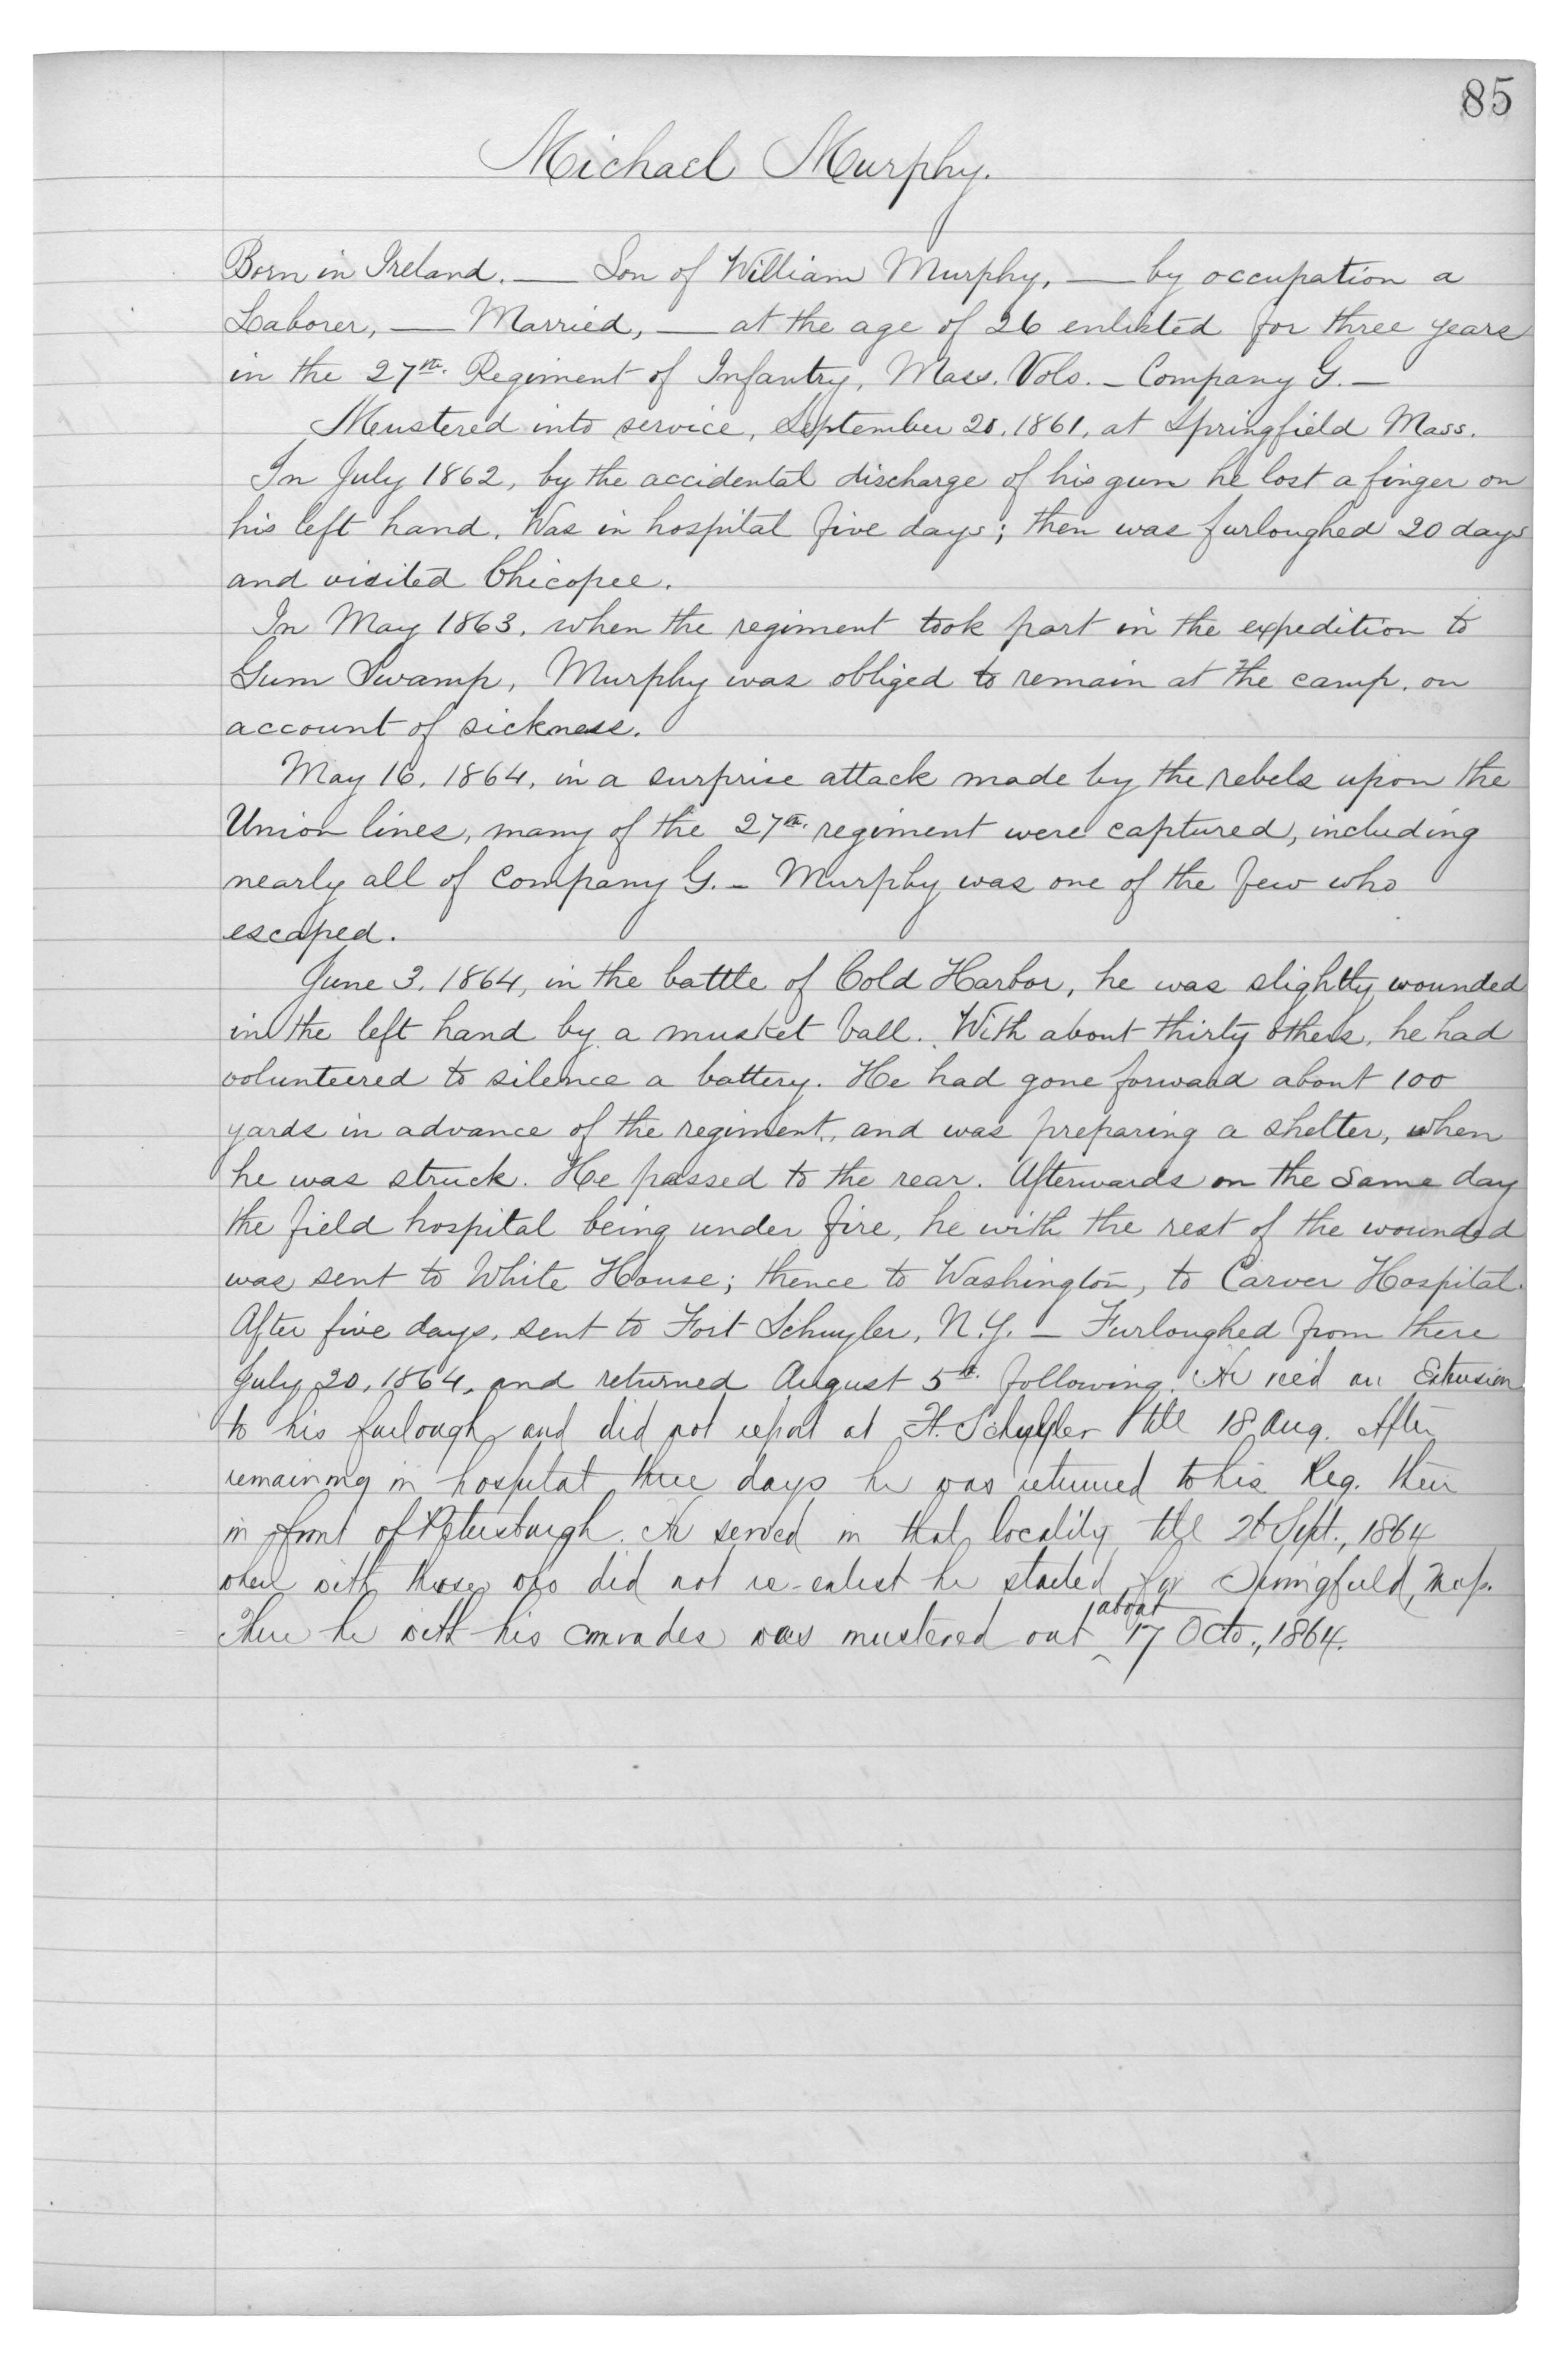 85
Michael Murphy.
Born in Ireland. — Son of William Murphy, — by occupation a
Laborer, — Married, — at the age of 26 enlisted for three years
in the 27th. Regiment of Infantry, Mass. Vols. – Company G. –
Mustered into service, September 20, 1861, at Springfield Mass.
In July 1862, by the accidental discharge of his gun he lost a finger on
his left hand. Was in hospital five days; then was furloughed 20 days
and visited Chicopee.
In May 1863, when the regiment took part in the expedition to
Gum Swamp, Murphy was obliged to remain at the camp, on
account of sickness.
May 16, 1864, in a surprise attack made by the rebels upon the
Union lines, many of the 27th. regiment were captured, including
nearly all of Company G. – Murphy was one of the few who
escaped.
June 3, 1864, in the battle of Cold Harbor, he was slightly wounded
in the left hand by a musket ball. With about thirty others, he had
volunteered to silence a battery. He had gone forward about 100
yards in advance of the regiment, and was preparing a shelter, when
he was struck. He passed to the rear. Afterwards on the same day
the field hospital being under fire, he with the rest of the wounded
was sent to White House; thence to Washington, to Carver Hospital.
After five days, sent to Fort Schuyler, N.Y. – Furloughed from there
July 20, 1864, and returned August 5th. following. He rec'd an Extension
to his furlough and did not report at Ft. Schuyler till 18 Aug. After
remaining in hospital three days he was returned to his Reg. then
in front of Petersburgh. He served in that locality till 26 Sept., 1864
when with those who did not re-enlist he started for Springfield, Mass.
There he with his comrades was mustered out about 17 Octo., 1864.